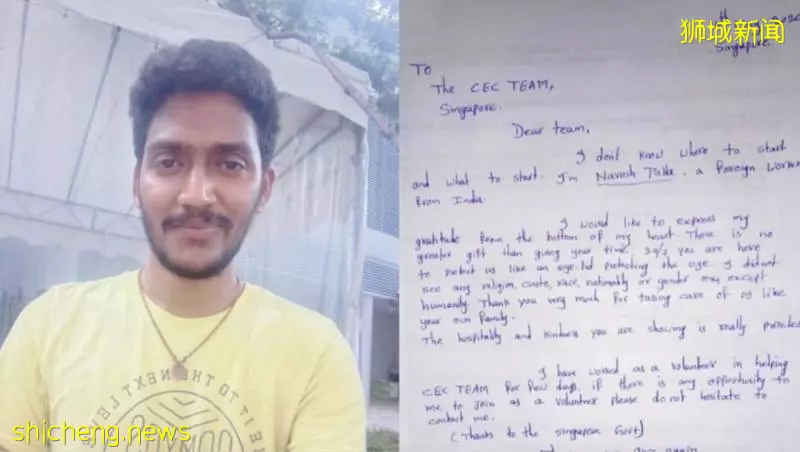 狮城新闻
Singapore.
TO
The CEC TEAM,
Singapore.
Dear team,
I don't know where to start
and what to start. I'm Navesh Talla. a Foreign Worker
From India.
I would like to express my
gratitude From the bottom of my heart. There is no
greater gift than giving your time. you are here
to protect us like an eye-lid protecting the eye. I didnot
see any religion, caste, race, nationality or gender except
humanity. Thank you very much For taking care of us like
your own Family.
The hospitality and kindness you are showing is really
I have worked as a volunteer in helping
CEC TEAM For Few days. if there is any opportunity to
me to join as a volunteer please do not hesitate to
contact me.
(Thanks to the singapore Govt)
once again
IT TO THE NEXT LE
shicheng.news